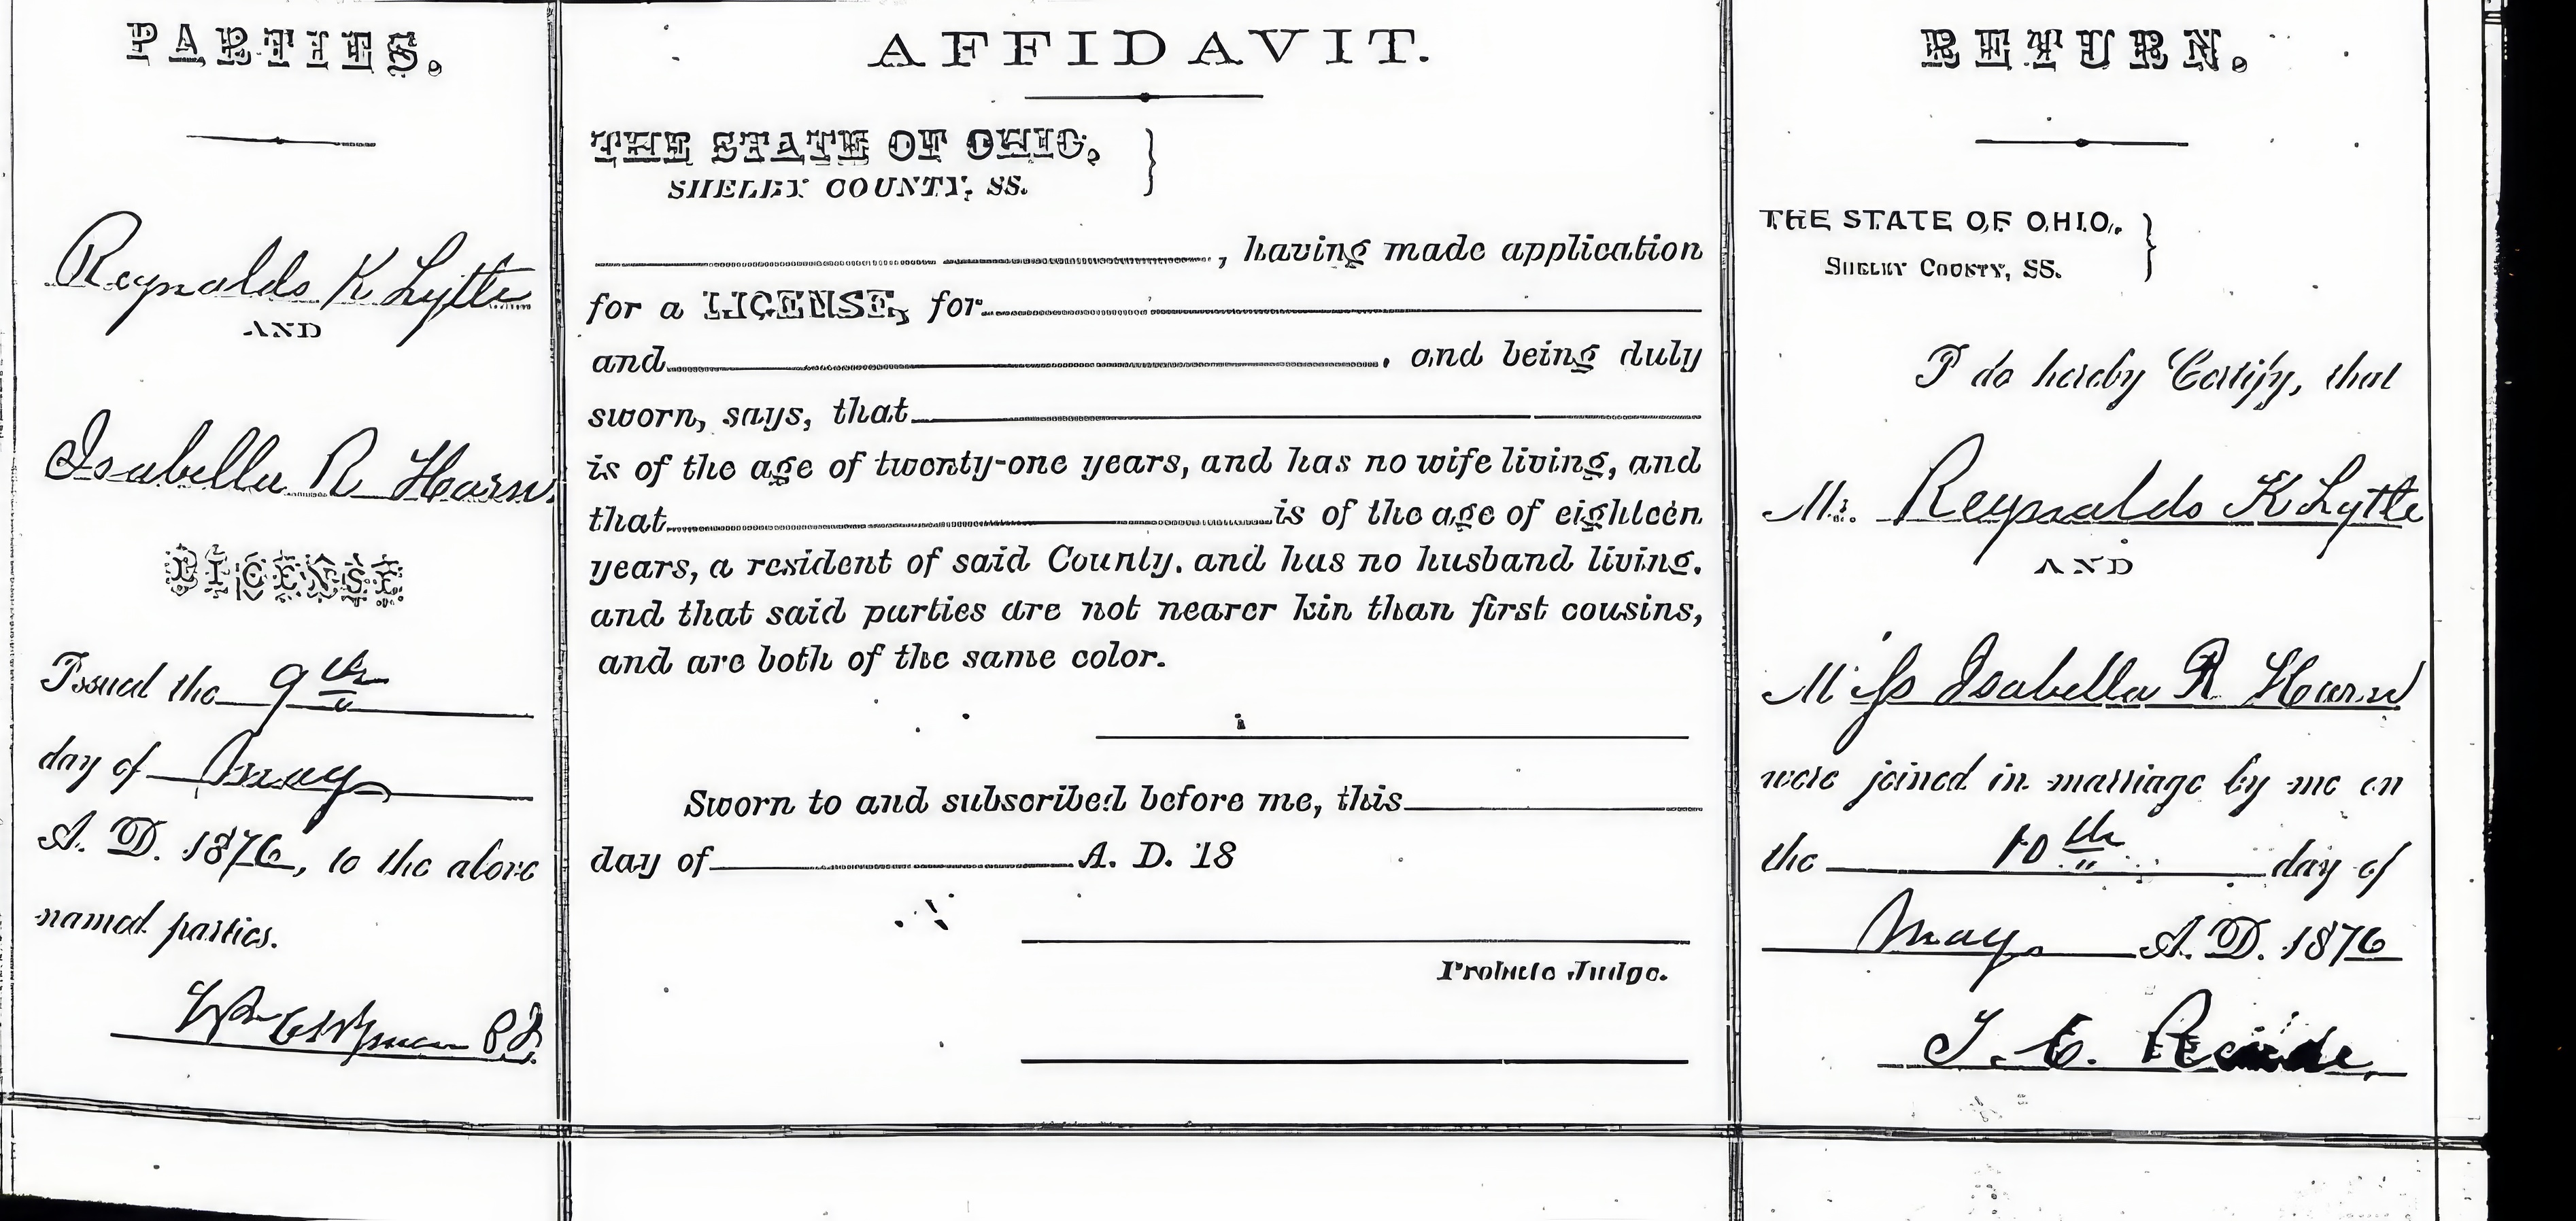 PARTIES.
Reynolds K Lytte
AND
Isabella R Hearn.
LICENSE
Issued the 9th
day of May
A. D. 1876, to the above
named parties.
P.J.
AFFIDAVIT.
THE STATE OF OHIO,
SHELBY COUNTY, SS.
, having made application
for a LICENSE, for
and , and being duly
sworn, says, that
is of the age of twenty-one years, and has no wife living, and
that is of the age of eighteen
years, a resident of said County, and has no husband living,
and that said parties are not nearer kin than first cousins,
and are both of the same color.
Sworn to and subscribed before me, this
day of A. D. 18
Probate Judge.
RETURN.
THE STATE OF OHIO,
SHELBY COUNTY, SS.
I do hereby Certify, that
Mr. Reynolds K Lytte
AND
Miss Isabella R Hearn
were joined in marriage by me on
the 10th day of
May A. D. 1876
T. E.